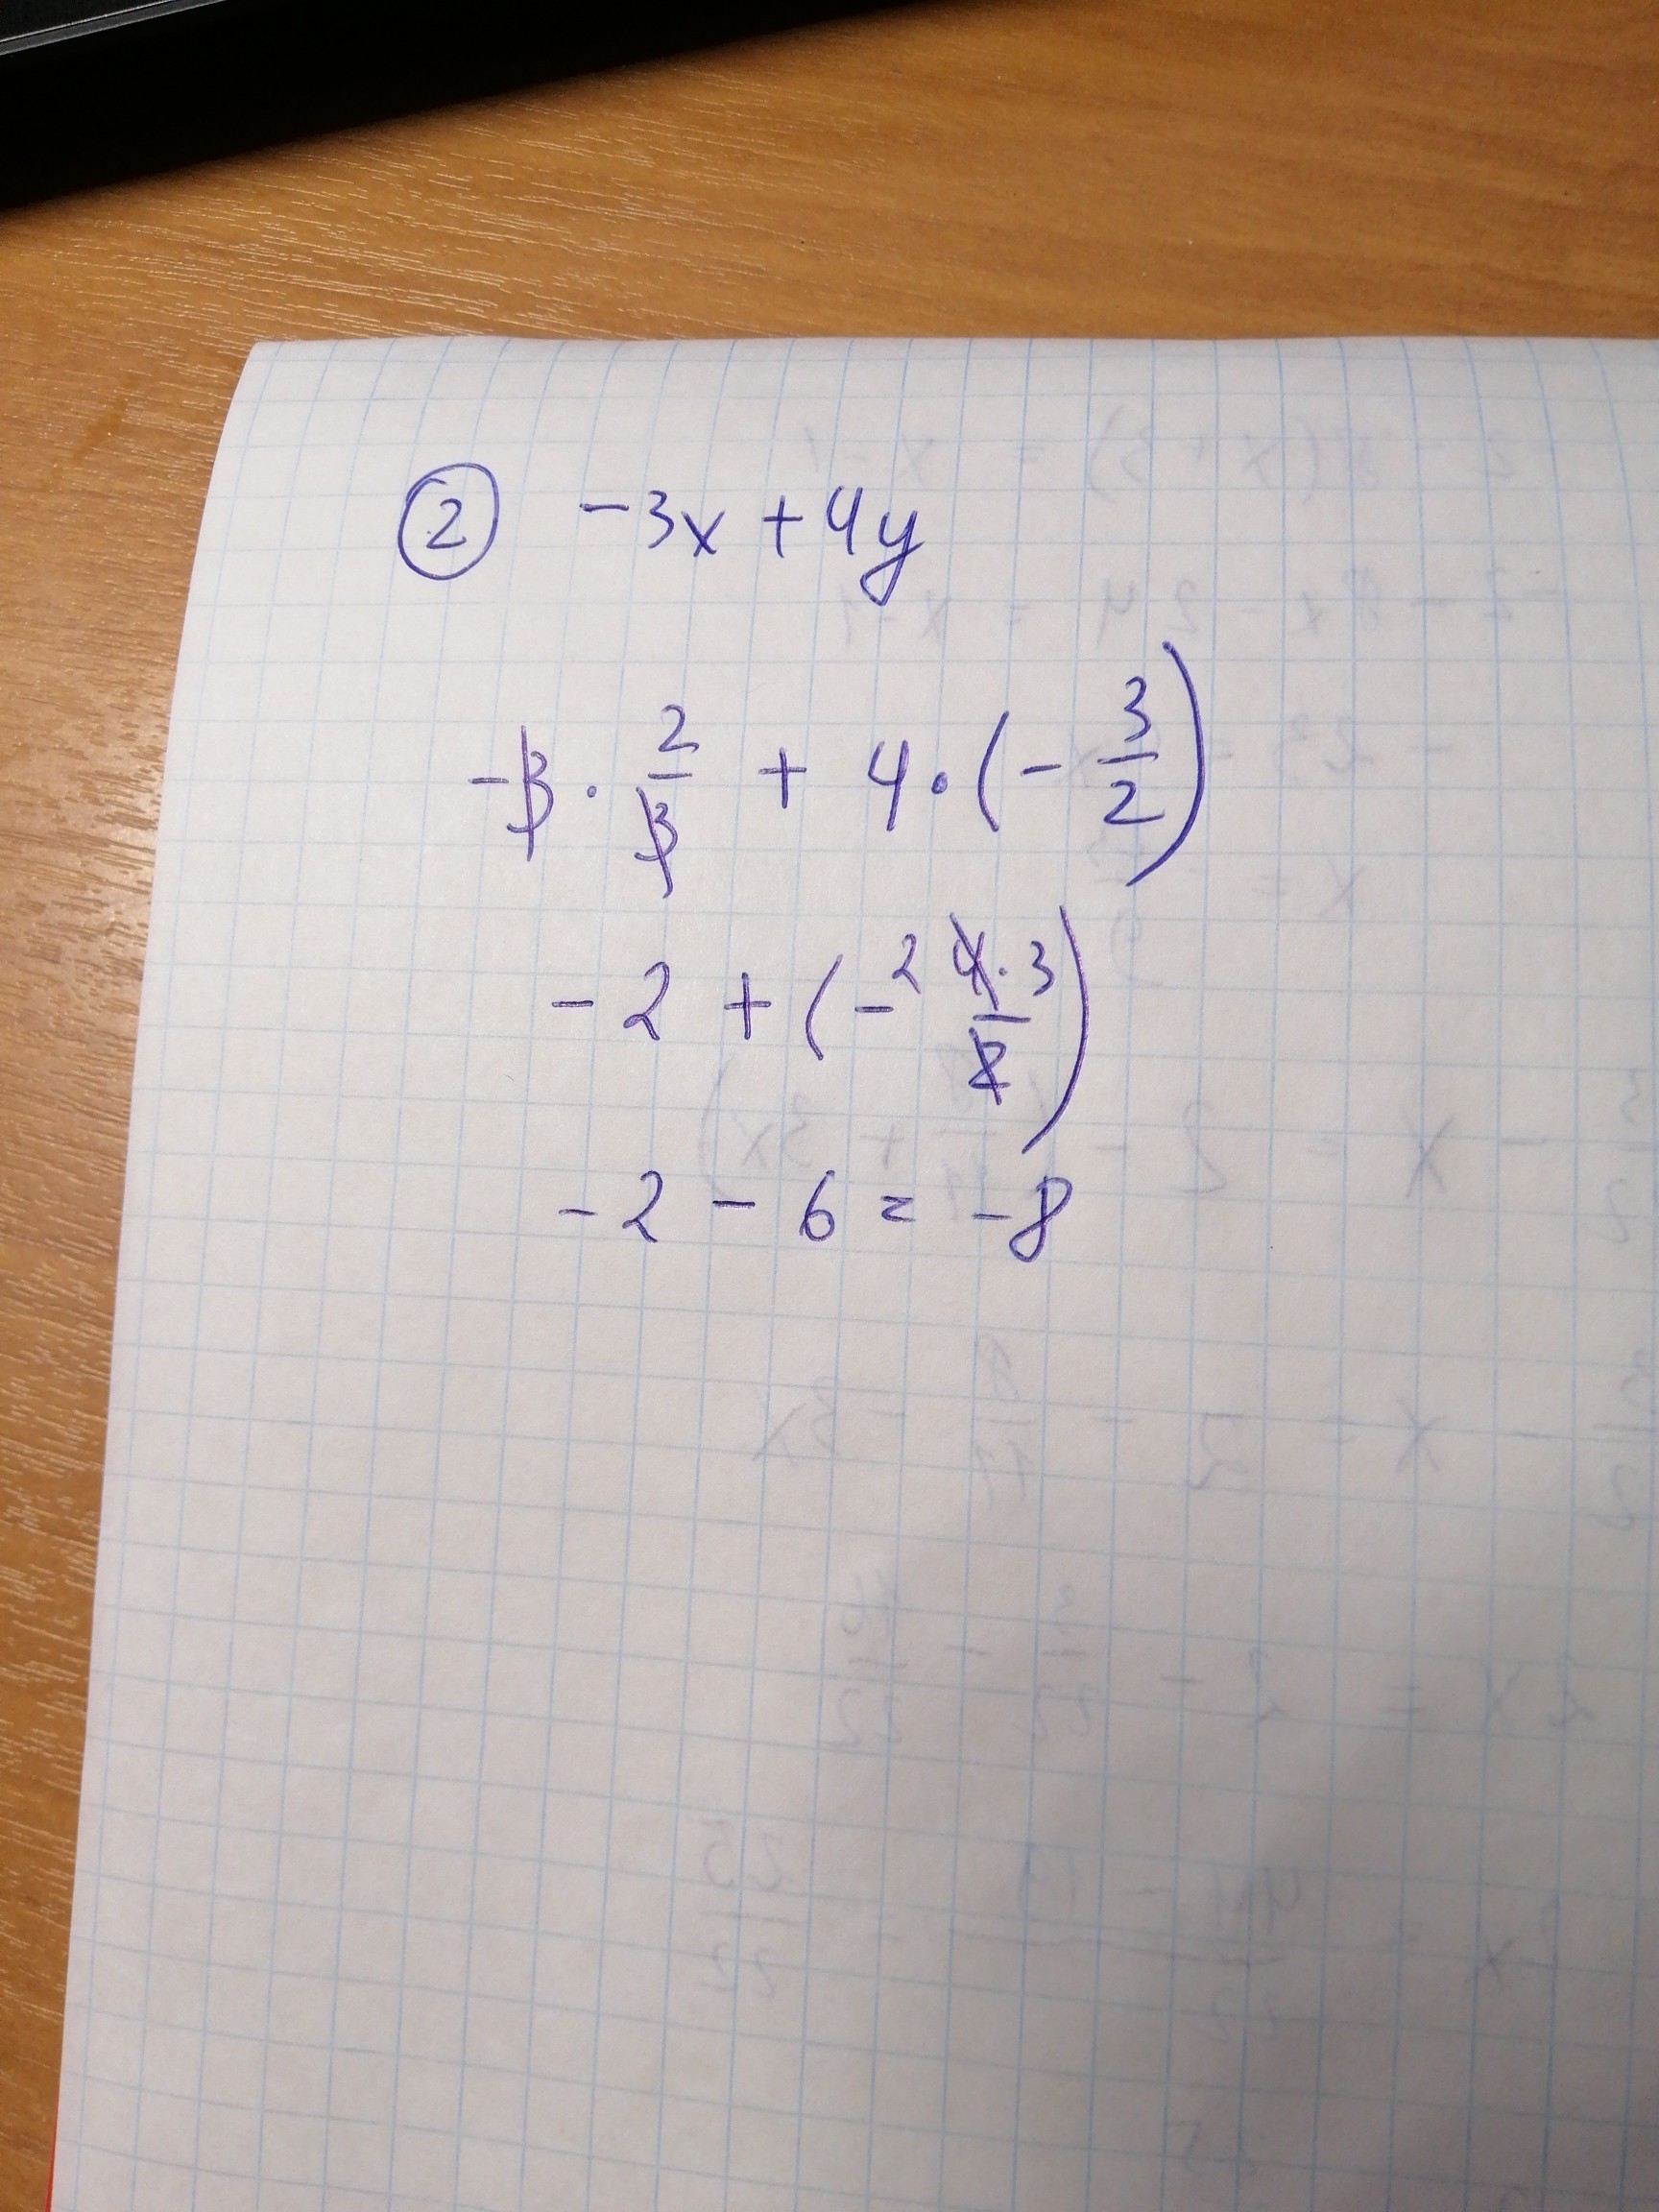 ② -3x + 4y
-3 · 2/3 + 4 · (- 3/2)
-2 + (- 2 4·3/2)
-2 - 6 = -8